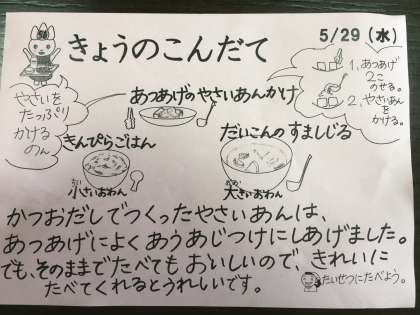 きょうのこんだて
5/29（水）
やさいを
たっぷり
かける
のん
1、あつあげ
2こ
のせる。
2、やさいあん
をかける。
あつあげのやさいあんかけ
きんぴらごはん
小さいおわん
だいこんのすましじる
大きいおわん
かつおだしでつくったやさいあんは、
あつあげによくあうあじつけにしあげました。
でも、そのままでたべてもおいしいので、きれいに
たべてくれるとうれしいです。
たいせつにたべよう。